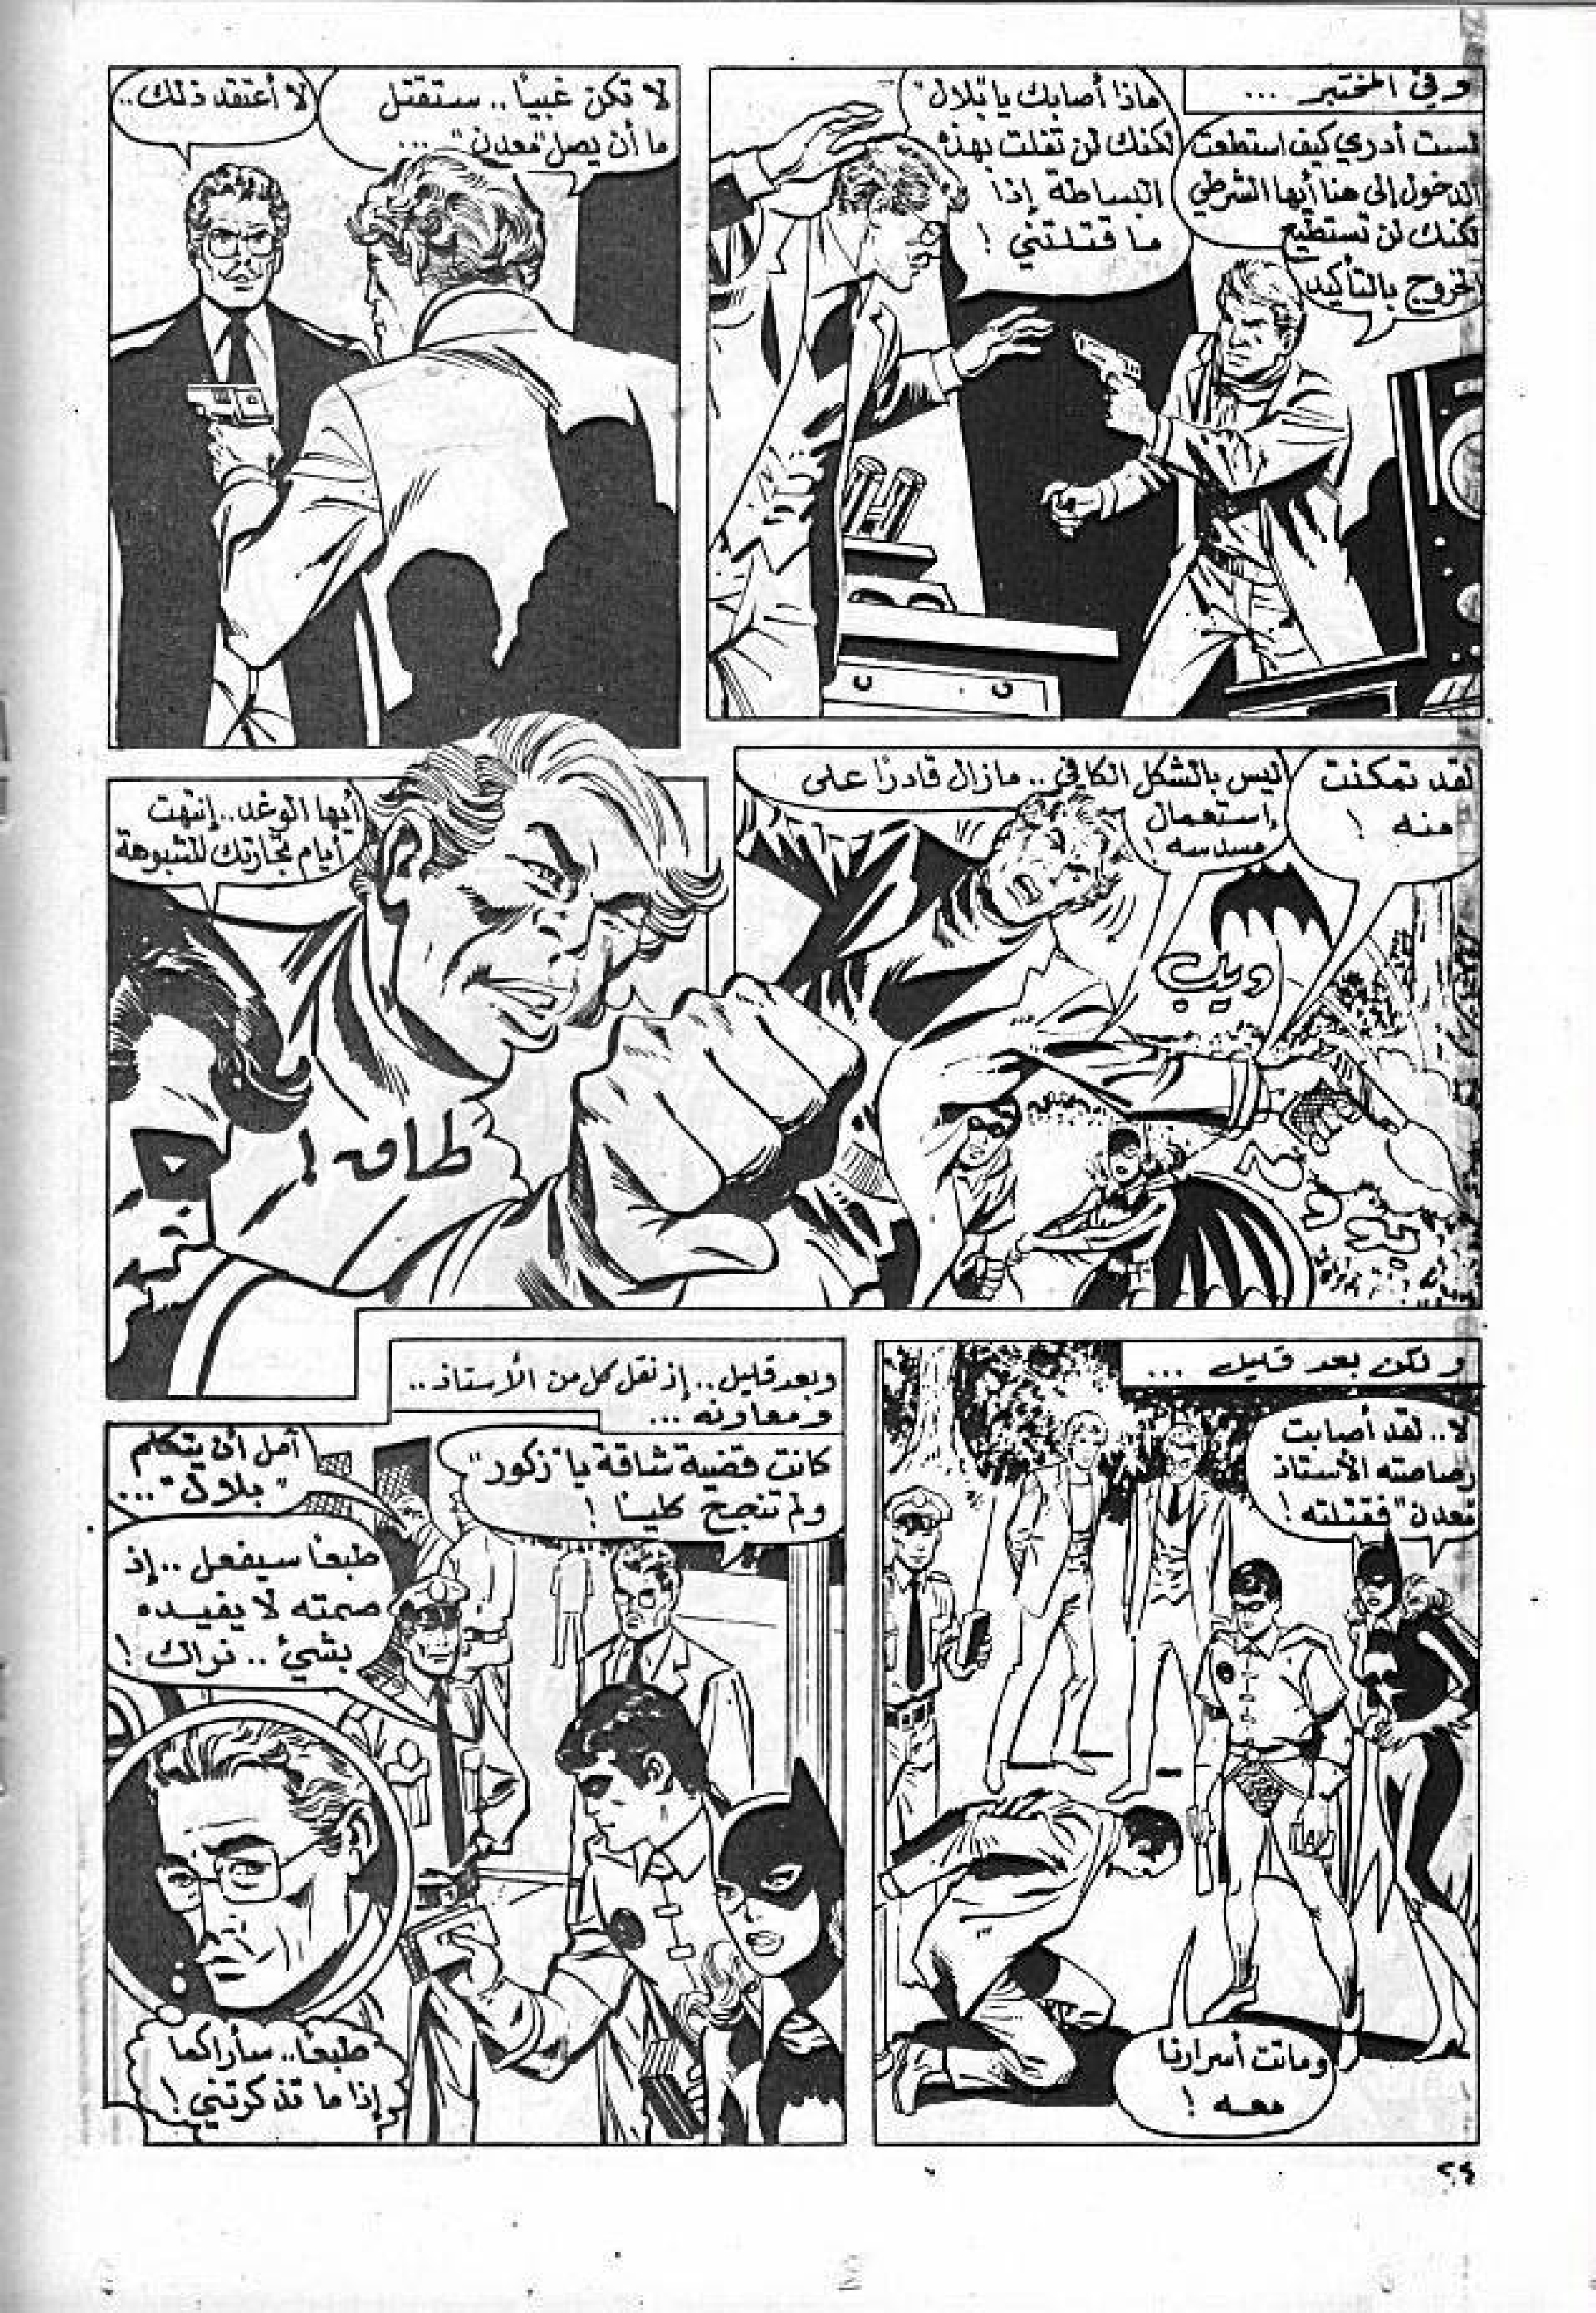 وفي المختبر ...
لست أدري كيف استطعت
الدخول إلى هنا أيها الشرطي
لكنك لن تستطيع
الخروج بالتأكيد
ماذا أصابك يا "بلال"
لكنك لن تفلت بهذه
البساطة إذا
ما قتلتني !
لا تكن غبياً .. ستقتل
ما أن يصل "معدن" ...
لا أعتقد ذلك ..
لقد تمكنت
منه !
ليس بالشكل الكافي .. مازال قادرًا على
إستعمال
مسدسه !
أيها الوغد .. إنتهت
أيام تجارتك المشبوهة
طاق !
ولكن بعد قليل ...
لا .. لقد أصابت
رصاصته الأستاذ
"معدن" فقتلته !
وماتت أسرارنا
معه !
وبعد قليل .. إذ نقل كل من الأستاذ ..
ومعاونه ...
كانت قضية شاقة يا "زكور"
ولم تنجح كليًا !
آمل أن يتكلم
"بلال" ...
طبعًا سيفعل .. إذ
صمته لا يفيده
بشيء .. نراك !
طبعًا .. سأراكما
إذا ما تذكرتني !
٢٤